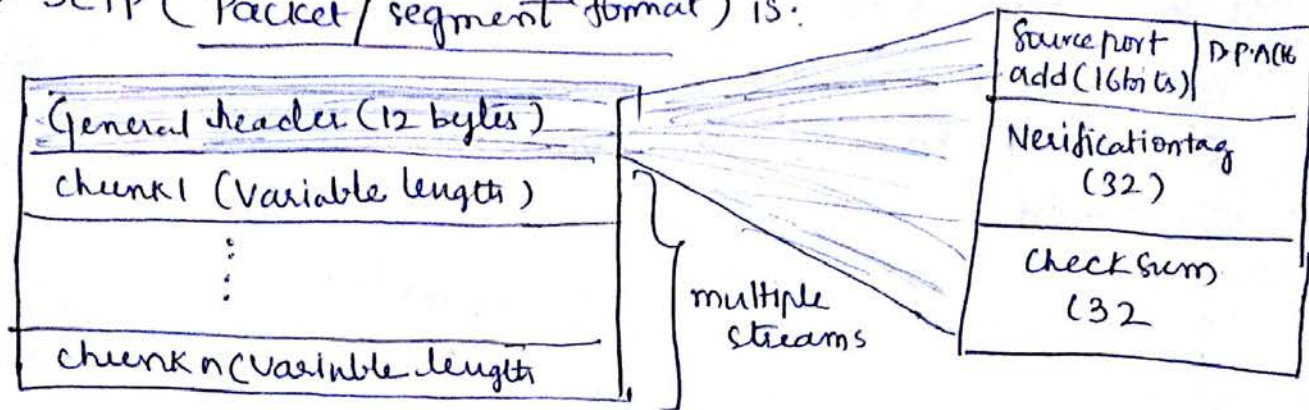 SCTP (Packet/segment format) is:
General header (12 bytes)
chunk1 (Variable length)
chunk n (Variable length
multiple
streams
Source port
add (16 bits)
Verification tag
(32)
checksum
(32